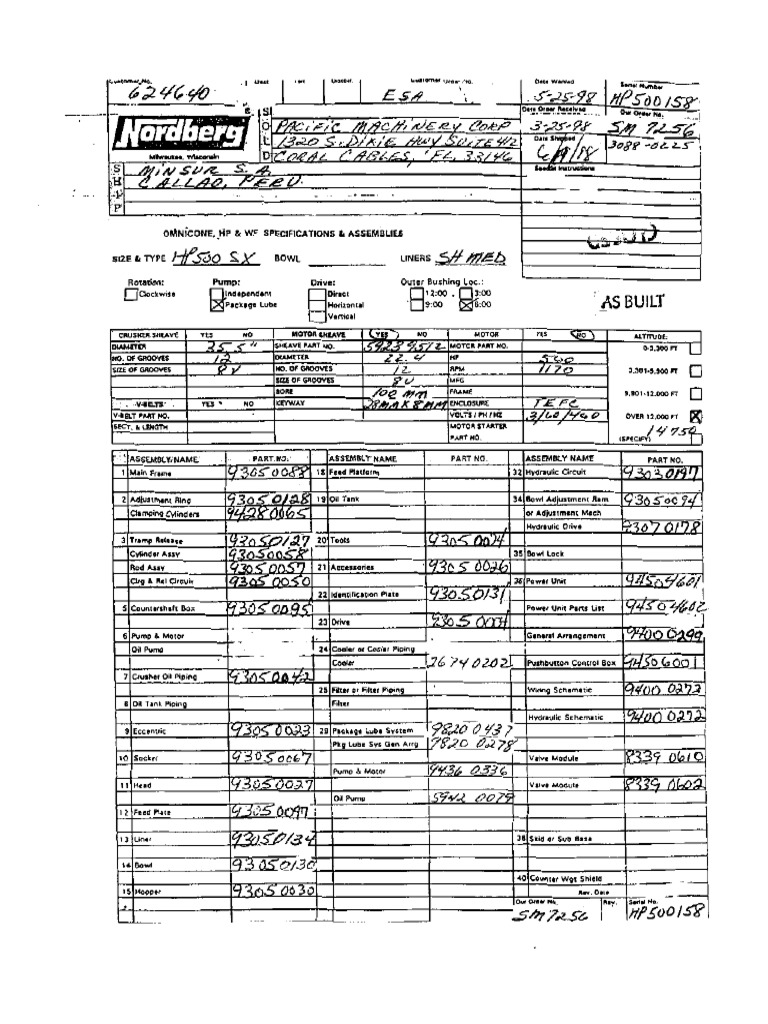 Customer No. Dist Terr Customer Order No. Date Wanted Serial Number
624640 ESA 5-25-98 HP500158
Date Order Received Our Order No.
SOLD PACIFIC MACHINERY CORP 3-25-98 SM 7256
Nordberg 1320 S. DIXIE HWY SUITE 412 Date Shipped 3088-0225
Milwaukee, Wisconsin CORAL CABLES, FL. 33146
SHIP MINSUR S.A.
CALLAO, PERU.
OMNICONE, HP & WF SPECIFICATIONS & ASSEMBLIES
SIZE & TYPE HP500 SX BOWL LINERS SH MED
Rotation: Pump: Drive: Outer Bushing Loc.:
Clockwise Independent Direct 12:00 3:00
Package Lube Horizontal 9:00 6:00
Vertical
AS BUILT
CRUSHER SHEAVE YES NO MOTOR SHEAVE YES NO MOTOR YES NO ALTITUDE:
DIAMETER 35.5" SHEAVE PART NO. 59239512 MOTOR PART NO. 0-3,300 FT
NO. OF GROOVES 12 DIAMETER 22.4 HP 500
SIZE OF GROOVES 8V NO. OF GROOVES 12 RPM 1170 3,301-9,900 FT
SIZE OF GROOVES 8V MFG
BORE 100 MM FRAME 9,901-12,000 FT
V-BELTS YES NO KEYWAY 28MM X 8MM ENCLOSURE TEFC
V-BELT PART NO. VOLTS / PH / HZ 3/60/460 OVER 12,000 FT
SECT. & LENGTH MOTOR STARTER 14750
PART NO. (SPECIFY)
ASSEMBLY NAME PART NO. ASSEMBLY NAME PART NO. ASSEMBLY NAME PART NO.
1 Main Frame 93050088 18 Feed Platform 32 Hydraulic Circuit 93030197
2 Adjustment Ring 93050128 19 Oil Tank 34 Bowl Adjustment Ram 93050094
Clamping Cylinders 94280065 or Adjustment Mech
Hydraulic Drive 93070178
3 Tramp Release 93050127 20 Tools 93050074
Cylinder Assy 93050058 35 Bowl Lock
Rod Assy 93050057 21 Accessories 93050026
Clrg & Rel Circuit 93050050 36 Power Unit 94504601
22 Identification Plate 93050131
5 Countershaft Box 93050095 Power Unit Parts List 94504602
23 Drive 93050004
6 Pump & Motor General Arrangement 94000299
Oil Pump 24 Cooler or Cooler Piping
Cooler 26740202 Pushbutton Control Box 94306001
7 Crusher Oil Piping 93050042
25 Filter or Filter Piping Wiring Schematic 94000272
8 Oil Tank Piping Filter
Hydraulic Schematic 94000272
9 Eccentric 93050023 29 Package Lube System 98200437
Pkg Lube Sys Gen Arrg 98200278
10 Socket 93050067 Valve Module 83390610
Pump & Motor 94360336
11 Head 93050027 Valve Module 83390602
Oil Pump 59420079
12 Feed Plate 93050097
13 Liner 93050134 38 Skid or Sub Base
14 Bowl 93050130
40 Counter Wgt Shield
15 Hopper 93050030 Rev. Date
Our Order No. Rev. Serial No.
SM7256 HP500158